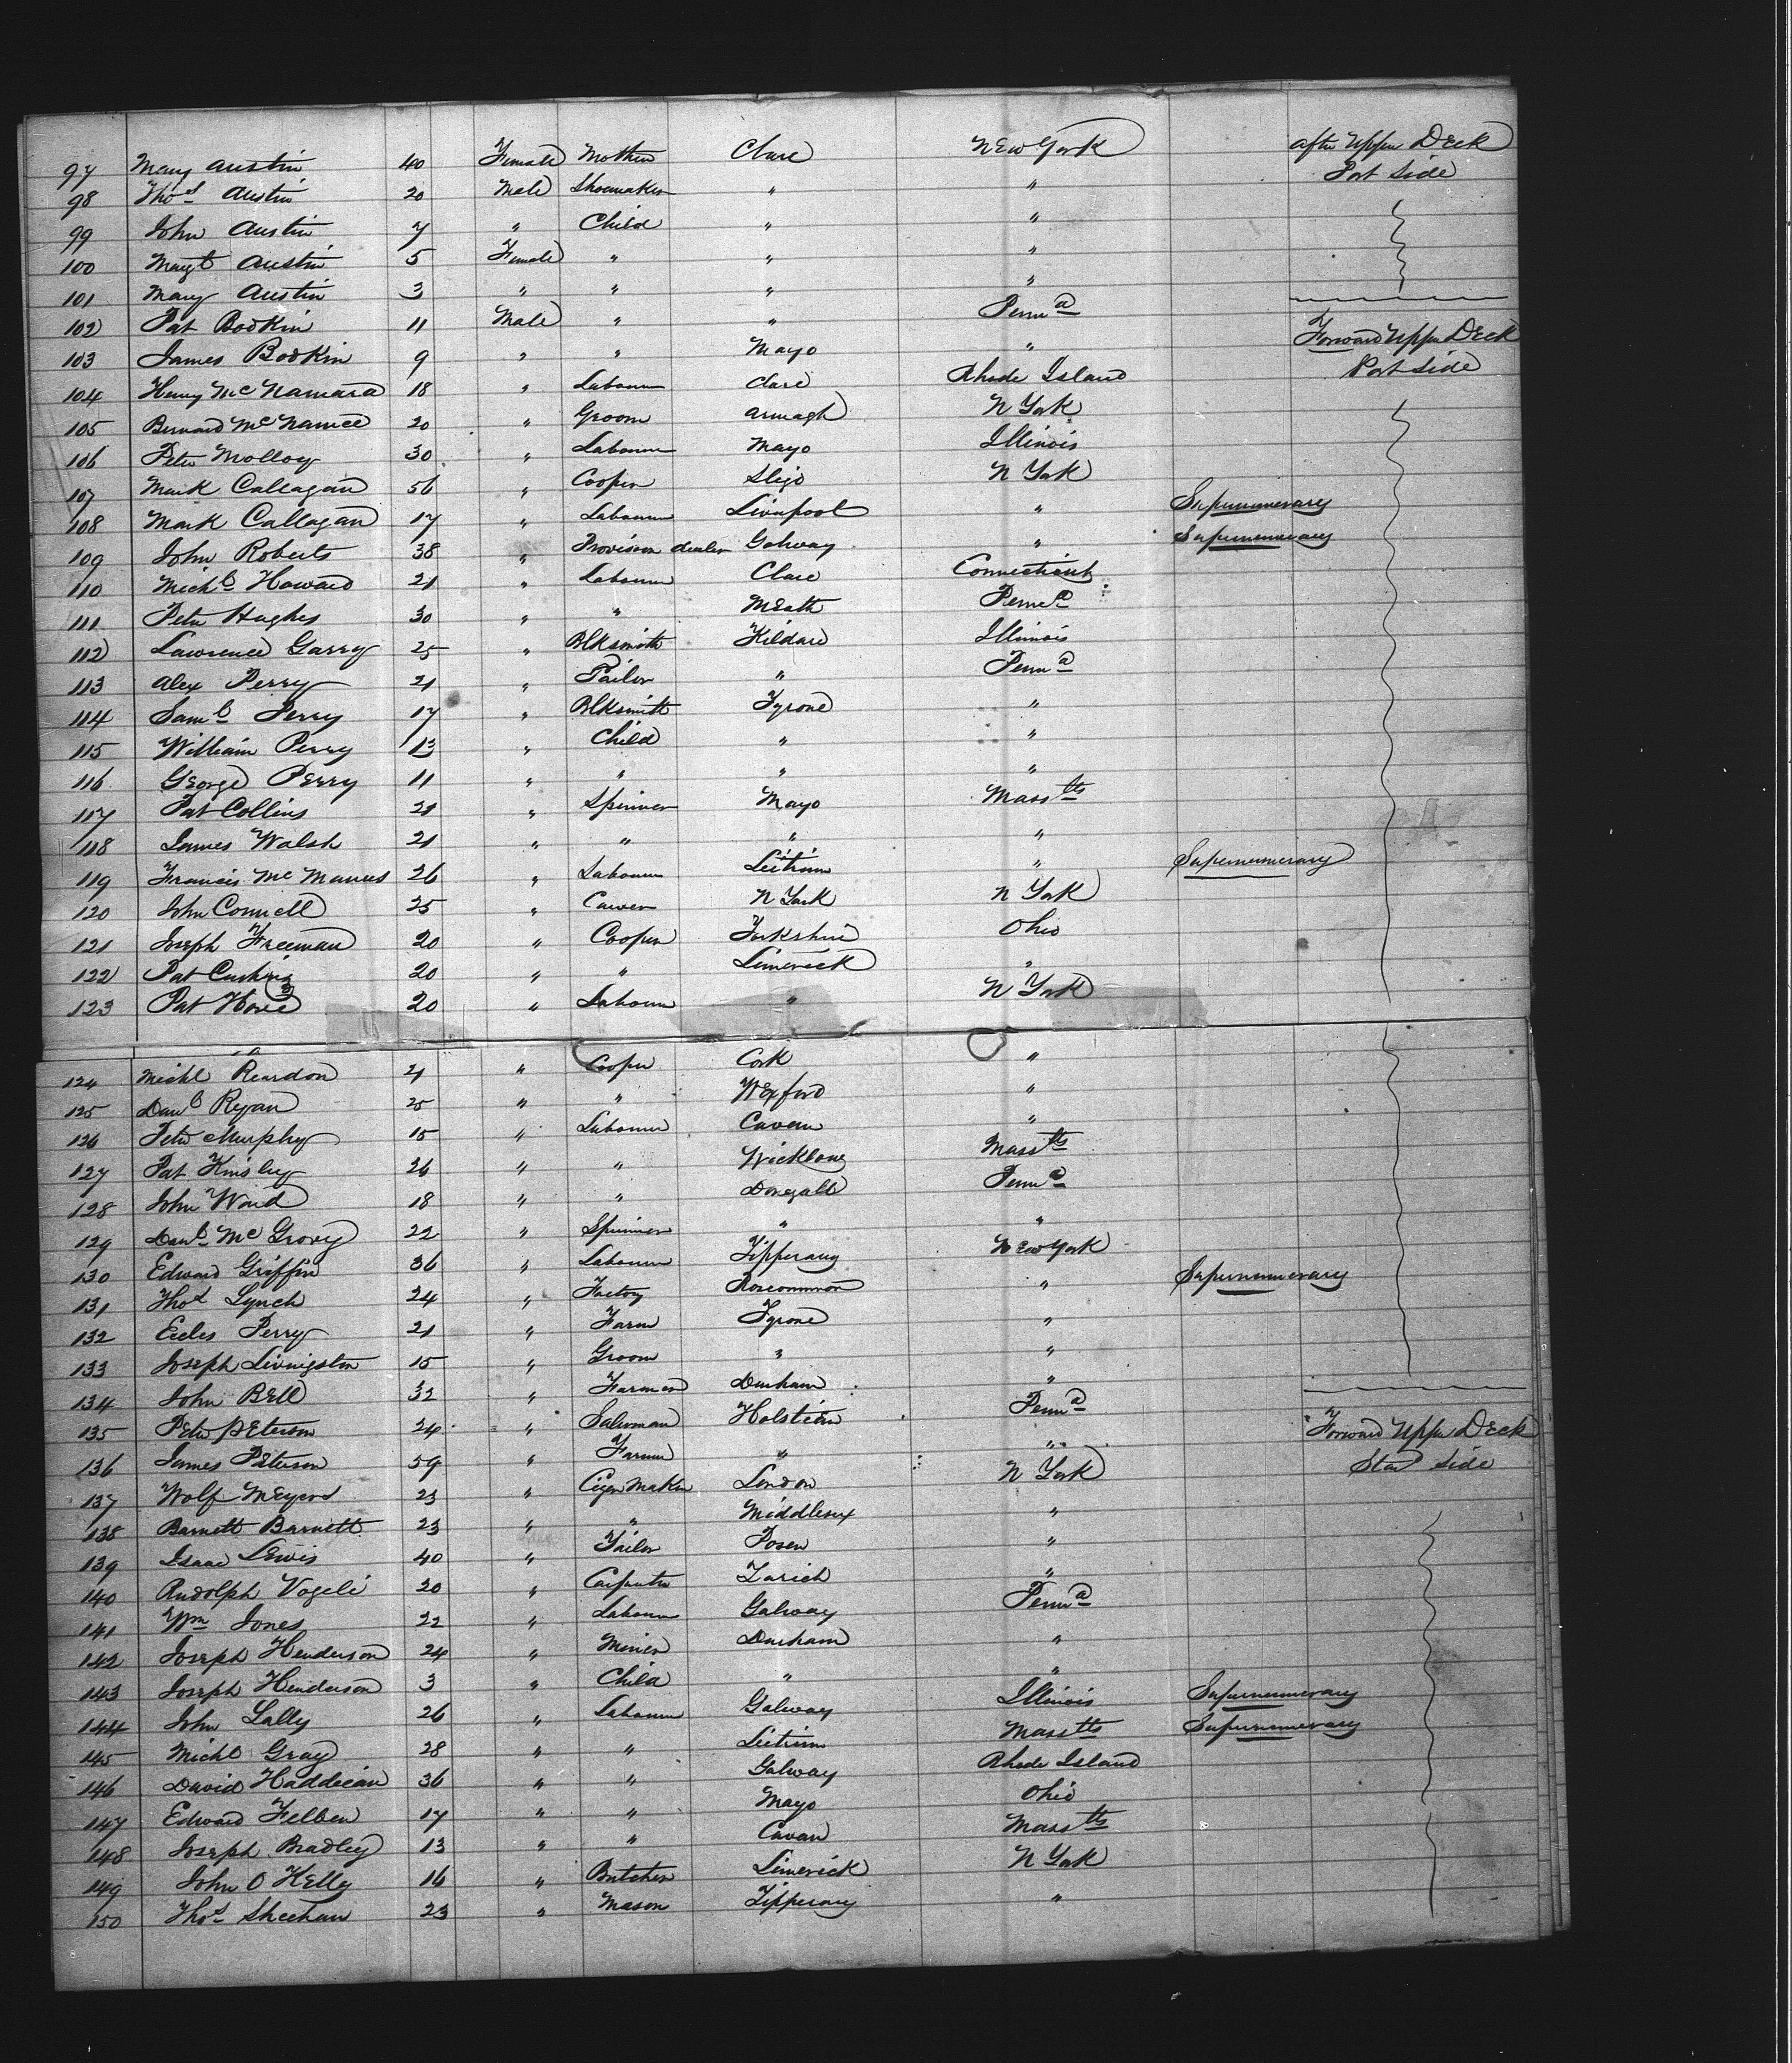 97 Mary Austin 40 Female Mother Clare New York After Upper Deck
98 Thos Austin 20 Male Shoemaker " " Port Side
99 John Austin 7 " Child " "
100 Magt Austin 5 Female " " "
101 Mary Austin 3 " " " "
102 Pat Bodkin 11 Male " " Penna
103 James Bodkin 9 " " Mayo " Forward Upper Deck
104 Henry McNamara 18 " Labourer Clare Rhode Island Port Side
105 Bernard McNamee 20 " Groom Armagh N York
106 Peter Molloy 30 " Labourer Mayo Illinois
107 Mark Callagan 56 " Cooper Sligo N York
108 Mark Callagan 17 " Labourer Liverpool " Supernumerary
109 John Roberts 38 " Provision dealer Galway " Supernumerary
110 Michl Howard 21 " Labourer Clare Connecticut
111 Peter Hughes 30 " " Meath Penna
112 Lawrence Garry 25 " Blksmith Kildare Illinois
113 Alex Perry 21 " Tailor " Penna
114 Saml Perry 17 " Blksmith Tyrone "
115 William Perry 13 " Child " "
116 George Perry 11 " " " "
117 Pat Collins 21 " Spinner Mayo Masstts
118 James Walsh 21 " " " "
119 Francis McManus 26 " Labourer Leitrim " Supernumerary
120 John Connell 25 " Carver N York N York
121 Joseph Freeman 20 " Cooper Yorkshire Ohio
122 Pat Cushing 20 " " Limerick "
123 Pat Hove 20 " Labourer " N York
124 Michl Reardon 21 " Cooper Cork "
125 Danl Ryan 25 " " Wexford "
126 Peter Murphy 15 " Labourer Cavan "
127 Pat Kinsley 26 " " Wicklow Masstts
128 John Ward 18 " " Donegall Penna
129 Danl McGrovy 22 " Spinner " "
130 Edward Griffin 36 " Labourer Tipperary New York
131 Thos Lynch 24 " Factory Roscommon " Supernumerary
132 Eccles Perry 21 " Farm Tyrone "
133 Joseph Livingston 15 " Groom " "
134 John Bell 32 " Farmer Durham "
135 Peter Peterson 24 " Salesman Holstein Penna Forward Upper Deck
136 James Peterson 59 " Farmer " " Star Side
137 Wolf Meyers 23 " Cigar Maker London N York
138 Barnett Barnett 23 " " Middlesex "
139 Isaac Lewis 40 " Tailor Posen "
140 Rudolph Vogeli 20 " Carpenter Zurich "
141 Wm Jones 22 " Labourer Galway Penna
142 Joseph Henderson 24 " Miner Durham "
143 Joseph Henderson 3 " Child " "
144 John Lally 26 " Labourer Galway Illinois Supernumerary
145 Michl Gray 28 " " Leitrim Masstts Supernumerary
146 David Haddican 36 " " Galway Rhode Island
147 Edward Felben 17 " " Mayo Ohio
148 Joseph Bradley 13 " " Cavan Masstts
149 John O Kelly 16 " Butcher Limerick N York
150 Thos Sheehan 23 " Mason Tipperary "